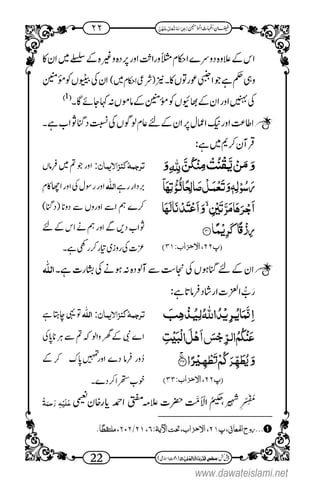 ۲۲ فیضانِ اُمَّہاتُ المؤمنین
اس کے علاوہ دوسرے احکام مثلاً وراثت اور پردہ وغیرہ کے سلسلے میں ان کا
وہی حکم ہے جو اجنبی عورتوں کا۔ یوں ہی ان کی بیٹیوں کو مؤمنین
کی بہنیں اور ان کے بھائیوں کو مؤمنین کے ماموں نہ کہا جائے گا۔ (1)
اطاعت اور نیک اعمال پر ان کے لئے عام لوگوں کی نسبت دگنا ثواب ہے۔
قرآنِ کریم میں ہے:
وَ مَنْ یَّقْنُتْ مِنْكُنَّ لِلّٰهِ وَ
رَسُوْلِهٖ وَ تَعْمَلْ صَالِحًا نُّؤْتِهَاۤ
اَجْرَهَا مَرَّتَیْنِۙ وَ اَعْتَدْنَا لَهَا
رِزْقًا كَرِیْمًا
(پ۲۲، الاحزاب: ۳۱)
ترجمۂ کنز الایمان: اور جو تم میں فرماں
بردار رہے اللہ اور رسول کی اور اچھا کام
کرے ہم اسے اوروں سے دونا (دگنا)
ثواب دیں گے اور ہم نے اس کے لئے
عزت کی روزی تیار کر رکھی ہے۔
ان کے لئے گناہوں کی نجاست سے آلودہ نہ ہونے کی بشارت ہے۔ اللہ
ربُّ العزت ارشاد فرماتا ہے:
اِنَّمَا یُرِیْدُ اللّٰهُ لِیُذْهِبَ
عَنْكُمُ الرِّجْسَ اَهْلَ الْبَیْتِ
وَ یُطَهِّرَكُمْ تَطْهِیْرًا
(پ۲۲، الاحزاب: ۳۳)
ترجمۂ کنز الایمان: اللہ تو یہی چاہتا ہے
اے نبی کے گھر والو کہ تم سے ہر ناپاکی
دُور فرما دے اور تمہیں پاک کر کے
خوب ستھرا کر دے۔
مُفَسِّرِ شہیر حکیمُ الْاُمَّت حضرت علامہ مفتی احمد یار خان نعیمی رَحْمَةُ
1 …روح المعانی، پ۲۱، الاحزاب، تحت الآیۃ: ۶، ۲۱/۲۰۲، ملتقطًا.
22
www.dawateislami.net